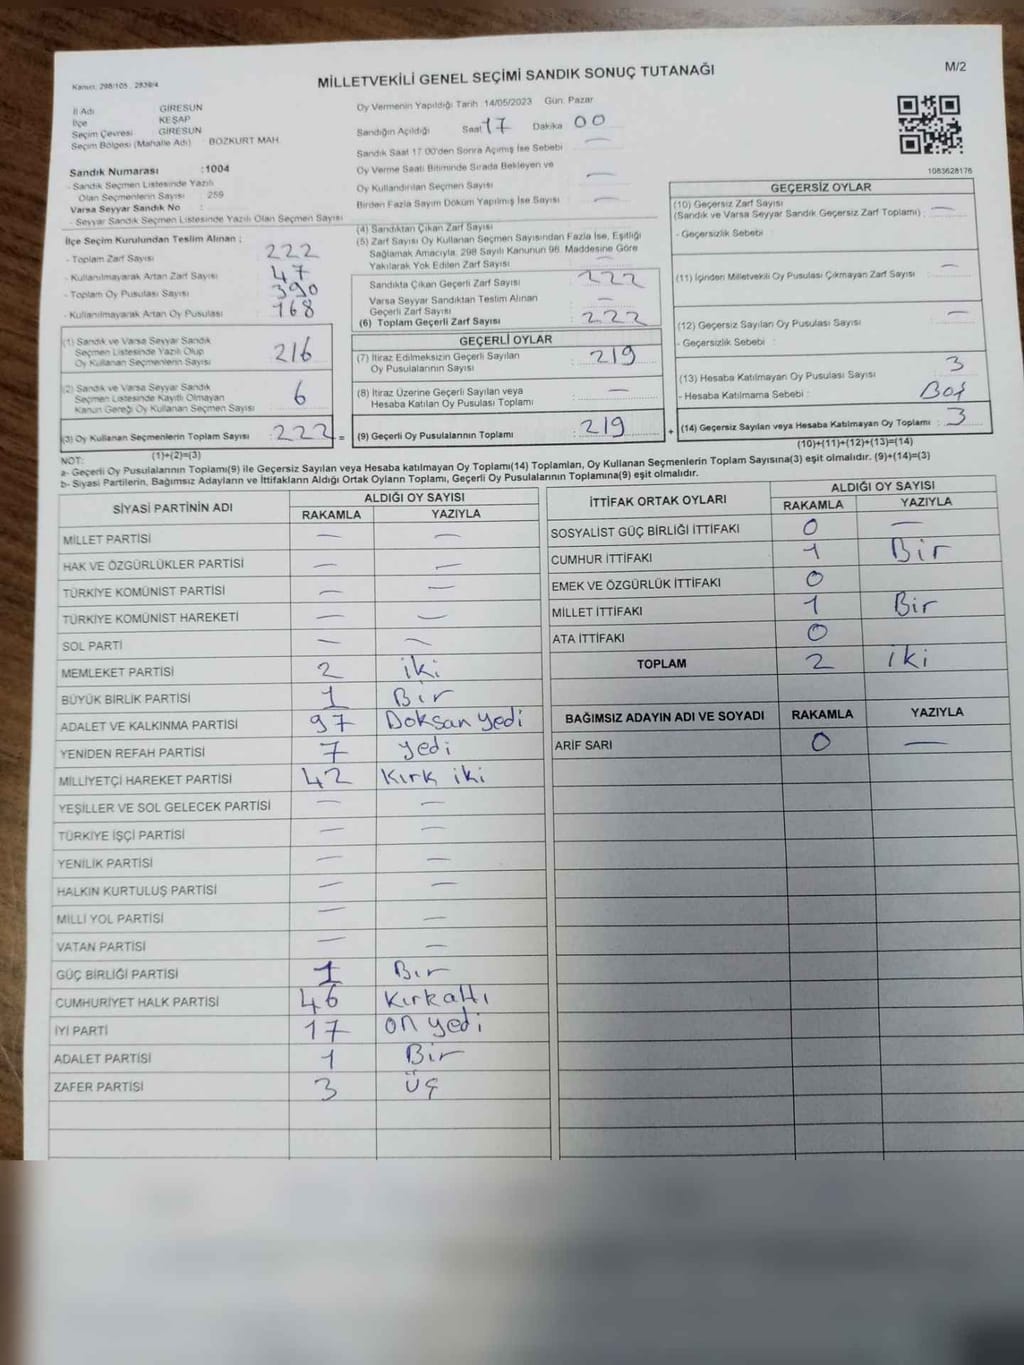 Kanun: 298/105, 2839/4
MİLLETVEKİLİ GENEL SEÇİMİ SANDIK SONUÇ TUTANAĞI
M/2
İl Adı GİRESUN
İlçe KEŞAP
Seçim Çevresi GİRESUN
Seçim Bölgesi (Mahalle Adı) : BOZKURT MAH
Sandık Numarası :1004
- Sandık Seçmen Listesinde Yazılı
Olan Seçmenlerin Sayısı : 259
Varsa Seyyar Sandık No :
- Seyyar Sandık Seçmen Listesinde Yazılı Olan Seçmen Sayısı
Oy Vermenin Yapıldığı Tarih 14/05/2023 Gün: Pazar
Sandığın Açıldığı Saat 17 Dakika 00
Sandık Saat 17.00'den Sonra Açılmış İse Sebebi —
Oy Verme Saati Bitiminde Sırada Bekleyen ve
Oy Kullandırılan Seçmen Sayısı —
Birden Fazla Sayım Döküm Yapılmış İse Sayısı —
1083628176
İlçe Seçim Kurulundan Teslim Alınan ;
- Toplam Zarf Sayısı : 222
- Kullanılmayarak Artan Zarf Sayısı : 47
- Toplam Oy Pusulası Sayısı : 390
- Kullanılmayarak Artan Oy Pusulası : 168
(1) Sandık ve Varsa Seyyar Sandık
Seçmen Listesinde Yazılı Olup
Oy Kullanan Seçmenlerin Sayısı : 216
(2) Sandık ve Varsa Seyyar Sandık
Seçmen Listesinde Kayıtlı Olmayan
Kanun Gereği Oy Kullanan Seçmen Sayısı : 6
(3) Oy Kullanan Seçmenlerin Toplam Sayısı : 222 =
(1)+(2)=(3)
(4) Sandıktan Çıkan Zarf Sayısı
(5) Zarf Sayısı Oy Kullanan Seçmen Sayısından Fazla İse, Eşitliği
Sağlamak Amacıyla, 298 Sayılı Kanunun 98. Maddesine Göre
Yakılarak Yok Edilen Zarf Sayısı : —
Sandıkta Çıkan Geçerli Zarf Sayısı : 222
Varsa Seyyar Sandıktan Teslim Alınan
Geçerli Zarf Sayısı : —
(6) Toplam Geçerli Zarf Sayısı : 222
GEÇERLİ OYLAR
(7) İtiraz Edilmeksizin Geçerli Sayılan
Oy Pusulalarının Sayısı : 219
(8) İtiraz Üzerine Geçerli Sayılan veya
Hesaba Katılan Oy Pusulası Toplamı : —
(9) Geçerli Oy Pusulalarının Toplamı : 219 +
GEÇERSİZ OYLAR
(10) Geçersiz Zarf Sayısı
(Sandık ve Varsa Seyyar Sandık Geçersiz Zarf Toplamı) : —
- Geçersizlik Sebebi :
(11) İçinden Milletvekili Oy Pusulası Çıkmayan Zarf Sayısı : —
(12) Geçersiz Sayılan Oy Pusulası Sayısı : —
- Geçersizlik Sebebi :
(13) Hesaba Katılmayan Oy Pusulası Sayısı : 3
- Hesaba Katılmama Sebebi : Boş
(14) Geçersiz Sayılan veya Hesaba Katılmayan Oy Toplamı : 3
(10)+(11)+(12)+(13)=(14)
NOT:
a- Geçerli Oy Pusulalarının Toplamı(9) ile Geçersiz Sayılan veya Hesaba katılmayan Oy Toplamı(14) Toplamları, Oy Kullanan Seçmenlerin Toplam Sayısına(3) eşit olmalıdır. (9)+(14)=(3)
b- Siyasi Partilerin, Bağımsız Adayların ve İttifakların Aldığı Ortak Oyların Toplamı, Geçerli Oy Pusulalarının Toplamına(9) eşit olmalıdır.
SİYASİ PARTİNİN ADI ALDIĞI OY SAYISI
RAKAMLA YAZIYLA
MİLLET PARTİSİ — —
HAK VE ÖZGÜRLÜKLER PARTİSİ — —
TÜRKİYE KOMÜNİST PARTİSİ — —
TÜRKİYE KOMÜNİST HAREKETİ — —
SOL PARTİ — —
MEMLEKET PARTİSİ 2 iki
BÜYÜK BİRLİK PARTİSİ 1 Bir
ADALET VE KALKINMA PARTİSİ 97 Doksan yedi
YENİDEN REFAH PARTİSİ 7 yedi
MİLLİYETÇİ HAREKET PARTİSİ 42 Kırk iki
YEŞİLLER VE SOL GELECEK PARTİSİ — —
TÜRKİYE İŞÇİ PARTİSİ — —
YENİLİK PARTİSİ — —
HALKIN KURTULUŞ PARTİSİ — —
MİLLİ YOL PARTİSİ — —
VATAN PARTİSİ — —
GÜÇ BİRLİĞİ PARTİSİ 1 Bır
CUMHURİYET HALK PARTİSİ 46 Kırkaltı
İYİ PARTİ 17 on yedi
ADALET PARTİSİ 1 Bir
ZAFER PARTİSİ 3 üç
İTTİFAK ORTAK OYLARI ALDIĞI OY SAYISI
RAKAMLA YAZIYLA
SOSYALİST GÜÇ BİRLİĞİ İTTİFAKI 0 —
CUMHUR İTTİFAKI 1 Bir
EMEK VE ÖZGÜRLÜK İTTİFAKI 0
MİLLET İTTİFAKI 1 Bir
ATA İTTİFAKI 0
TOPLAM 2 iki
BAĞIMSIZ ADAYIN ADI VE SOYADI RAKAMLA YAZIYLA
ARİF SARI 0 —